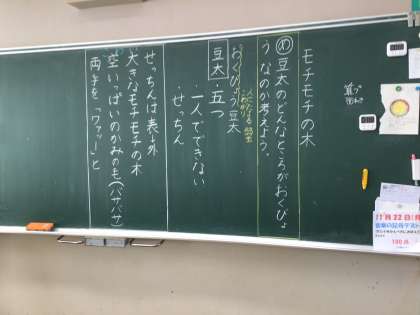 モチモチの木
め 豆太のどんなところがおくびょ
うなのか考えよう。
おくびょう豆太
豆太・五つ
・一人でできない
・せっちん
せっちんは表・外
大きなモチモチの木
空いっぱいのかみのも(バサバサ)
両手を「ワァッー」と
11月22日(月)
100点